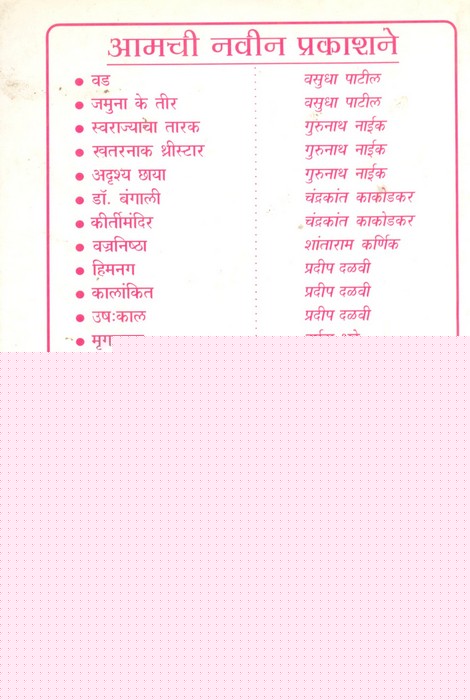 आमची नवीन प्रकाशने
• वड वसुधा पाटील
• जमुना के तीर वसुधा पाटील
• स्वराज्याचा तारक गुरुनाथ नाईक
• खतरनाक थ्रीस्टार गुरुनाथ नाईक
• अदृश्य छाया गुरुनाथ नाईक
• डॉ. बंगाली चंद्रकांत काकोडकर
• कीर्तीमंदिर चंद्रकांत काकोडकर
• वज्रनिष्ठा शांताराम कर्णिक
• हिमनग प्रदीप दळवी
• कालांकित प्रदीप दळवी
• उषःकाल प्रदीप दळवी